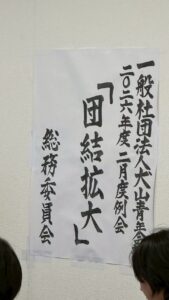 一般社団法人犬山青年会
二〇二六年度 二月度例会
「団結拡大」
総務委員会